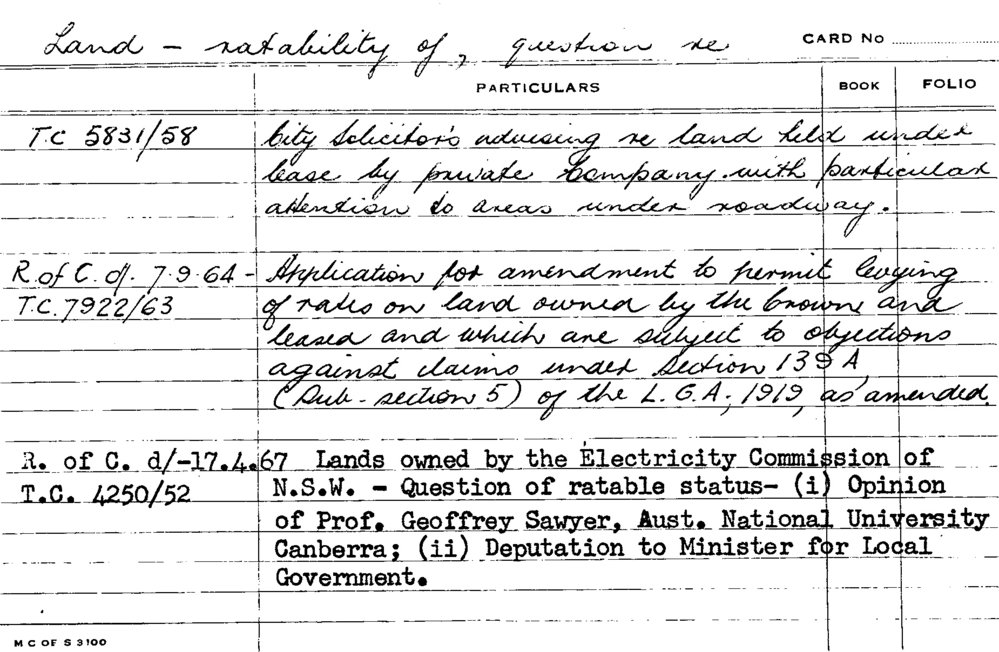 Land - ratability of, question re CARD No
PARTICULARS BOOK FOLIO
T.C 5831/58 City Solicitor's advising re land held under
lease by private Company with particular
attention to areas under roadway.
R. of C. d/. 7.9.64 - Application for amendment to permit levying
T.C. 7922/63 of rates on land owned by the Crown and
leased and which are subject to objections
against claims under Section 139A
(Sub-section 5) of the L.G.A., 1919, as amended.
R. of C. d/-17.4.67 Lands owned by the Electricity Commission of
T.C. 4250/52 N.S.W. - Question of ratable status- (i) Opinion
of Prof. Geoffrey Sawyer, Aust. National University
Canberra; (ii) Deputation to Minister for Local
Government.
M C OF S 3100